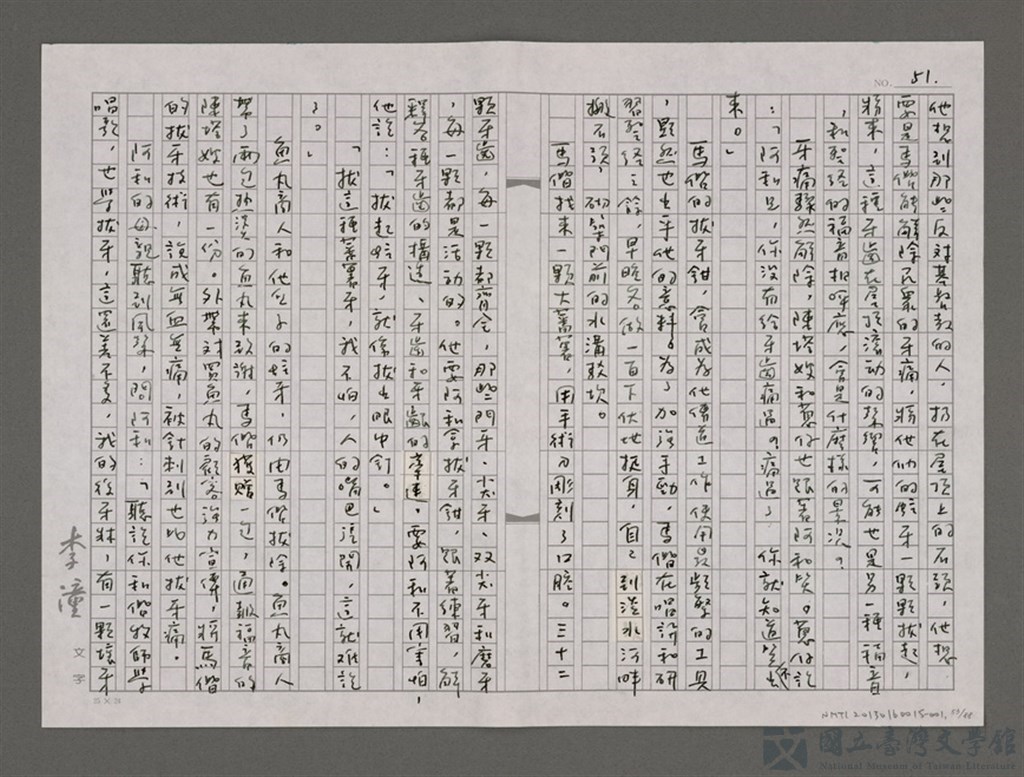 NO. 51.
他想到那些反對基督教的人，扔在屋頂上的石頭，他想
要是馬偕能解除民眾的牙痛，將他們的蛀牙一顆顆拔起，
將來，這種牙齒在屋頂滾動的聲響，可能也是另一種福音
，和聖經的福音相呼應，會是什麼樣的景況？
牙痛驟然解除，陳塔嫂和蔥仔也跟著阿和笑。蔥仔說
：「阿和兄，你沒有給牙齒痛過？痛過了，你就知道笑不出
來。」
馬偕的拔牙鉗，會成為他傳道工作使用最頻繁的工具
，顯然也出乎他的意料。為了加強手勁，馬偕在唱詩和研
習聖經之餘，早晚各做一百下伏地挺身，自己到淡水河畔
搬石頭，砌築門前的水溝駁坎。
馬偕找來一顆大蕃薯，用手術刀彫刻了口腔。三十二
顆牙齒，每一顆都齊全，那些門牙、犬牙、双尖牙和磨牙
，每一顆都是活動的。他要阿和拿拔牙鉗，跟著練習，解
釋各種牙齒的構造、牙齒和牙齦的牽連，要阿和不用害怕，
他說：「拔起蛀牙，就像拔出眼中釘。」
「拔這種蕃薯牙，我不怕，人的嘴巴張開，這就难說
了。」
魚丸商人和他兒子的蛀牙，仍由馬偕拔除。魚丸商人
帶了兩包熱燙的魚丸來致謝，馬偕獲贈一包，而報福音的
陳塔嫂也有一份。外帶對買魚丸的顧客強力宣傳，將馬偕
的拔牙技術，說成無血無痛，被針刺到也比他拔牙痛。
阿和的母親聽到風聲，問阿和：「聽說你和偕牧師學
唱歌，也學拔牙，這還差不多，我的後牙牀，有一顆壞牙
李潼
文字
25×24
NMTL20130160015-001
國立臺灣文學館
National Museum of Taiwan Literature